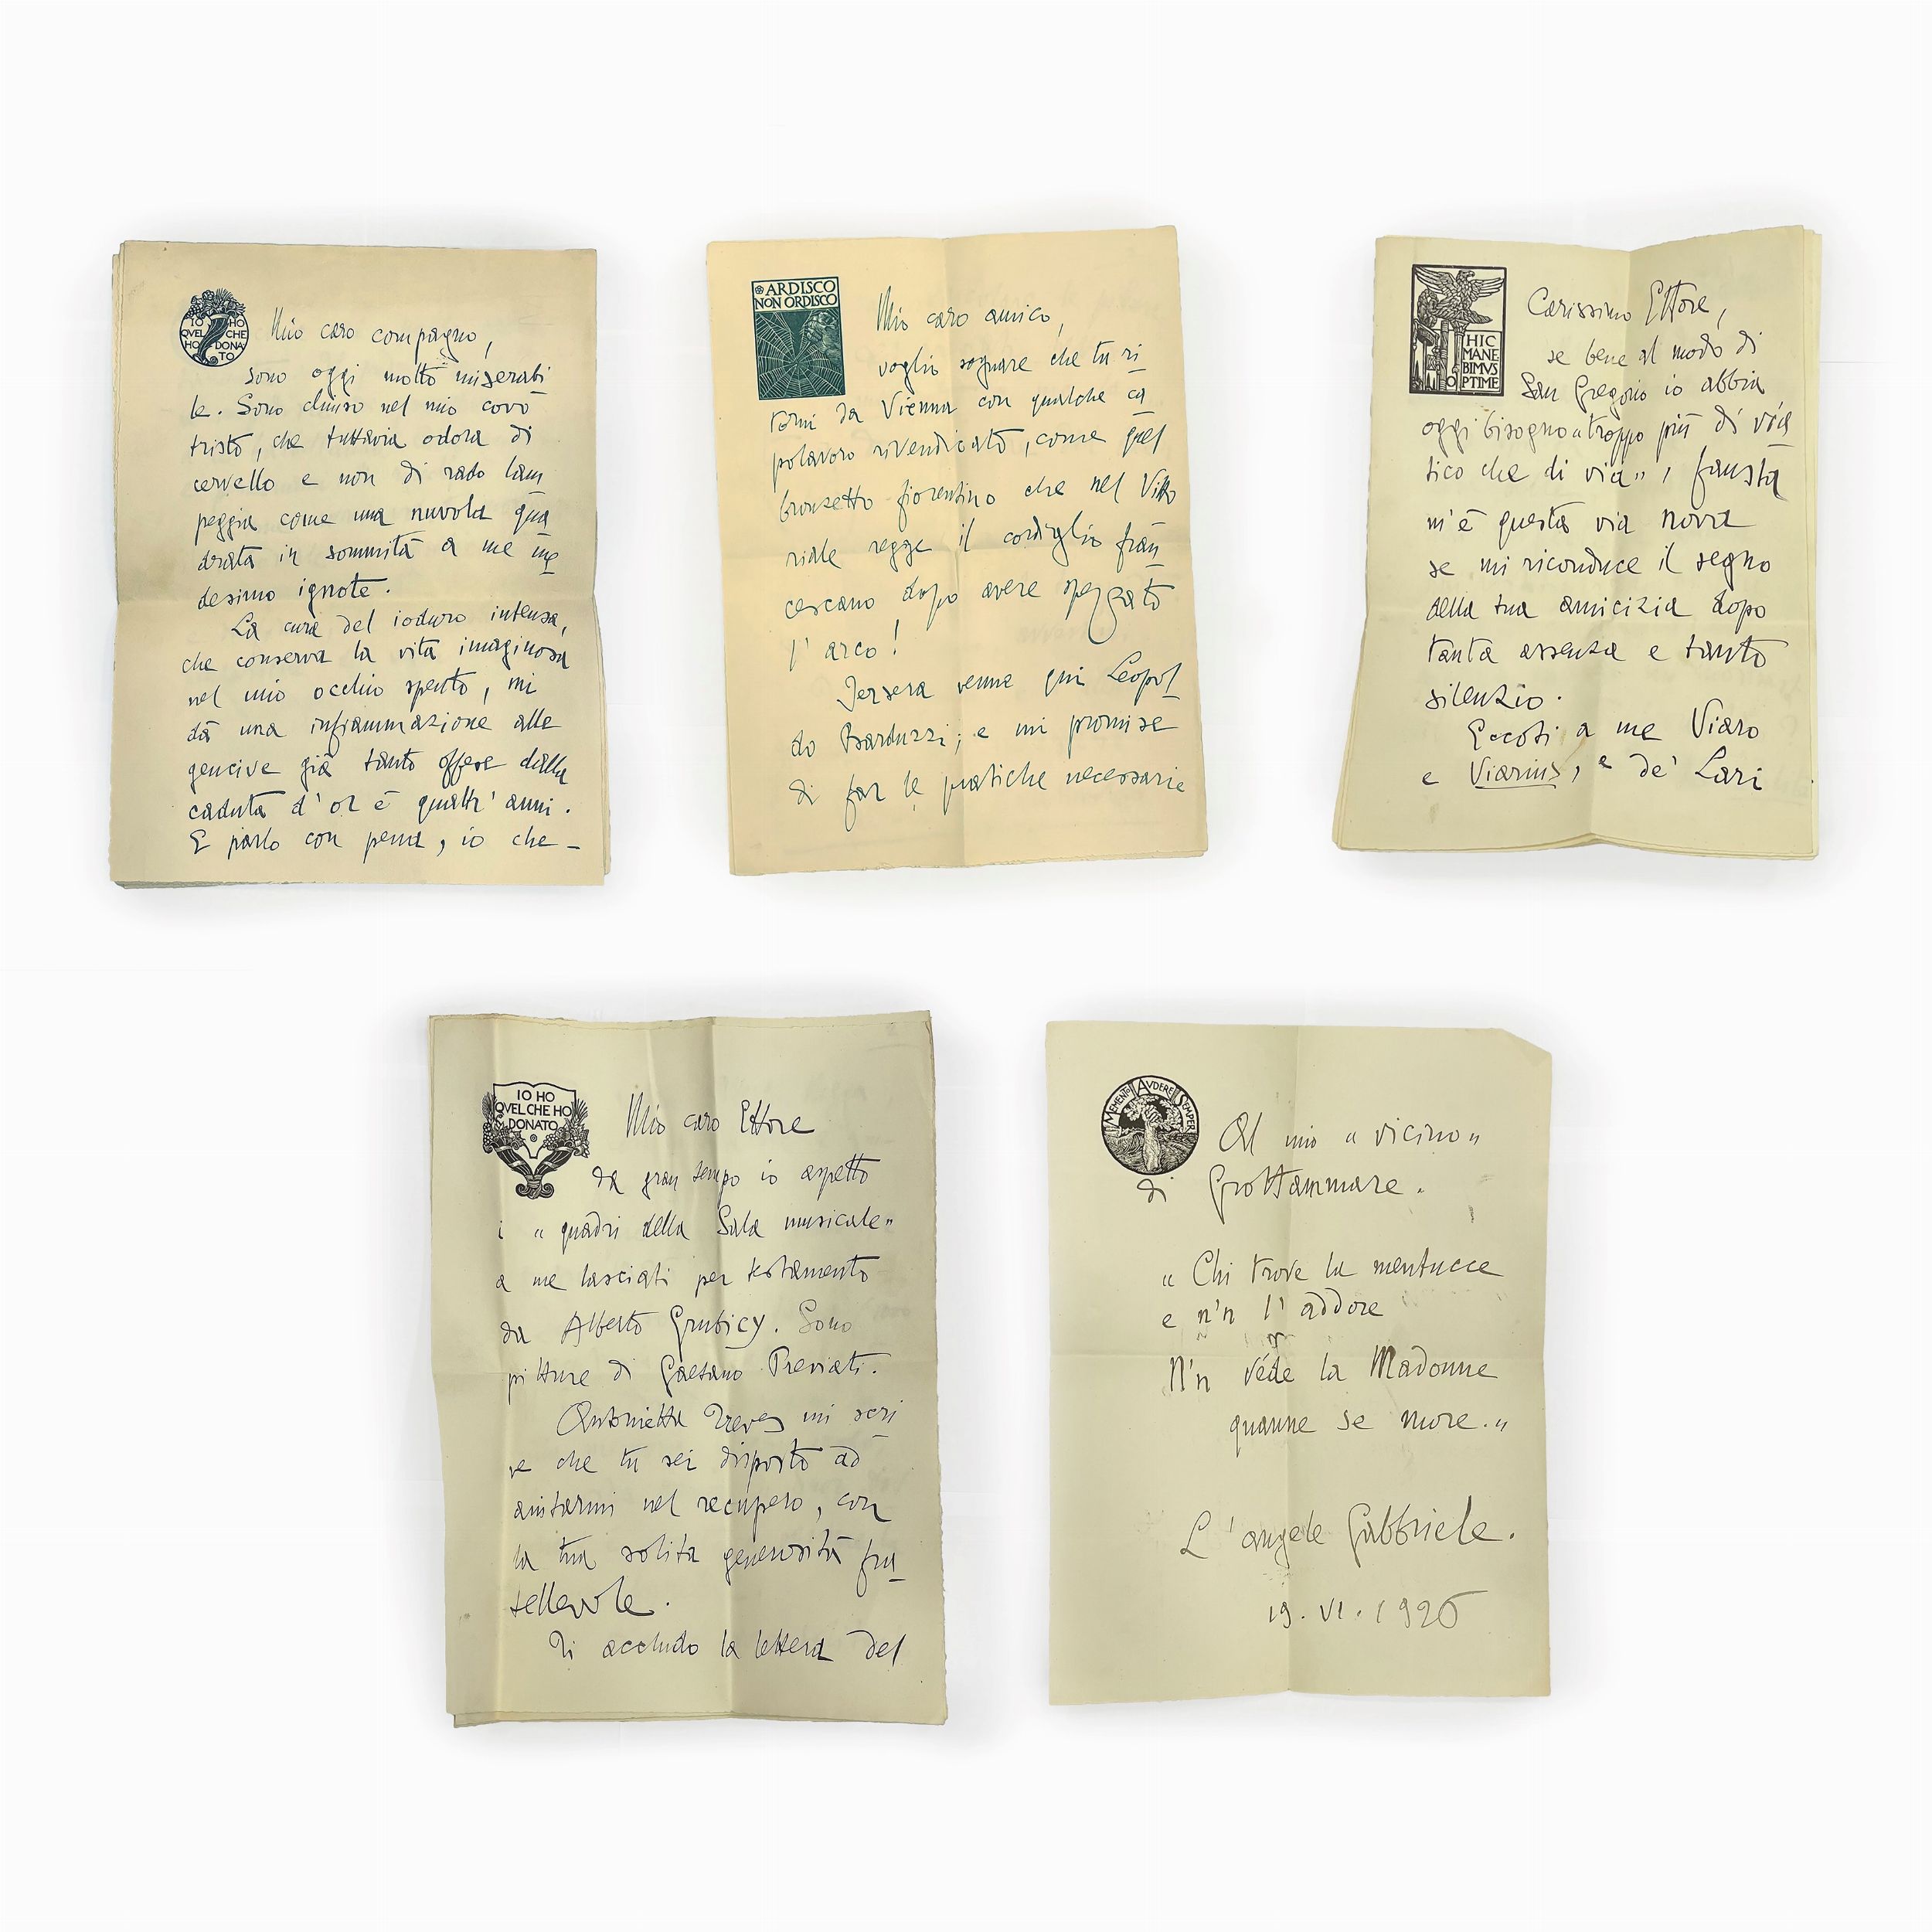 IO HO
QVEL CHE
HO DONA
TO
Mio caro compagno,
sono oggi molto miserabi
le. Sono chiuso nel mio covo
tristo, che tuttavia odora di
cervello e non di rado lam
peggia come una nuvola qua
drata in sommità a me me
desimo ignote.
La cura del ioduro intensa,
che conserva la vita imaginosa
nel mio occhio spento, mi
dà una infiammazione alle
gencive già tanto offese dalla
caduta d'or è quattr'anni.
E parlo con pena, io che –
ARDISCO
NON ORDISCO
Mio caro amico,
voglio sognare che tu ri
torni da Vienna con qualche ca
polavoro rivendicato, come quel
bronzetto fiorentino che nel Vitto
riale regge il cordiglio fran
cescano dopo avere spezzato
l'arco!
Jersera venne qui Leopol
do Barduzzi; e mi promise
di far le pratiche necessarie
HIC
MANE
BIMVS
OPTIME
Carissimo Ettore,
se bene al modo di
San Gregorio io abbia
oggi bisogno "troppo più di via
tico che di via", fausta
m'è questa via nova
se mi riconduce il segno
della tua amicizia dopo
tanta assenza e tanto
silenzio.
Eccoti a me Viaro
e Viarius, e de' Lari
IO HO
QVEL CHE HO
DONATO
Mio caro Ettore
da gran tempo io aspetto
i "quadri della Sala musicale"
a me lasciati per testamento
da Alberto Grubicy. Sono
pitture di Gaetano Previati.
Antonietta Treves mi scri
ve che tu sei disposto ad
aiutarmi nel recupero, con
la tua solita generosità fra
tellevole.
Ti accludo la lettera del
MEMENTO AVDERE SEMPER
Al mio "vicino"
di Grottammare.
"Chi trove la mentucce
e n'n l'addore
N'n véde la Madonne
quanne se more."
L'angele Gabbriele.
19. VI. 1926